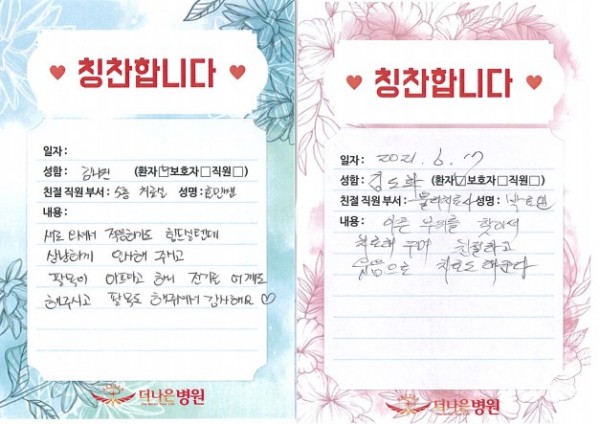 칭찬합니다
일자:
성함: (환자☑보호자□직원□)
친절 직원 부서: 5층 치료실 성명:
내용:
새로 와서 적응하기도 힘드실텐데
상냥하게 인사해 주시고
팔목이 아프다고 하니 전기를 어깨도
해주시고 팔목도 해주셔서 감사해요♡
더나은병원
칭찬합니다
일자: 2021. 6. 7
성함: 김도화 (환자☑보호자□직원□)
친절 직원 부서: 물리치료사 성명:
내용: 아픈 부위를 찾아서
치료해 주며 친절하고
웃음으로 치료도 해준다
더나은병원